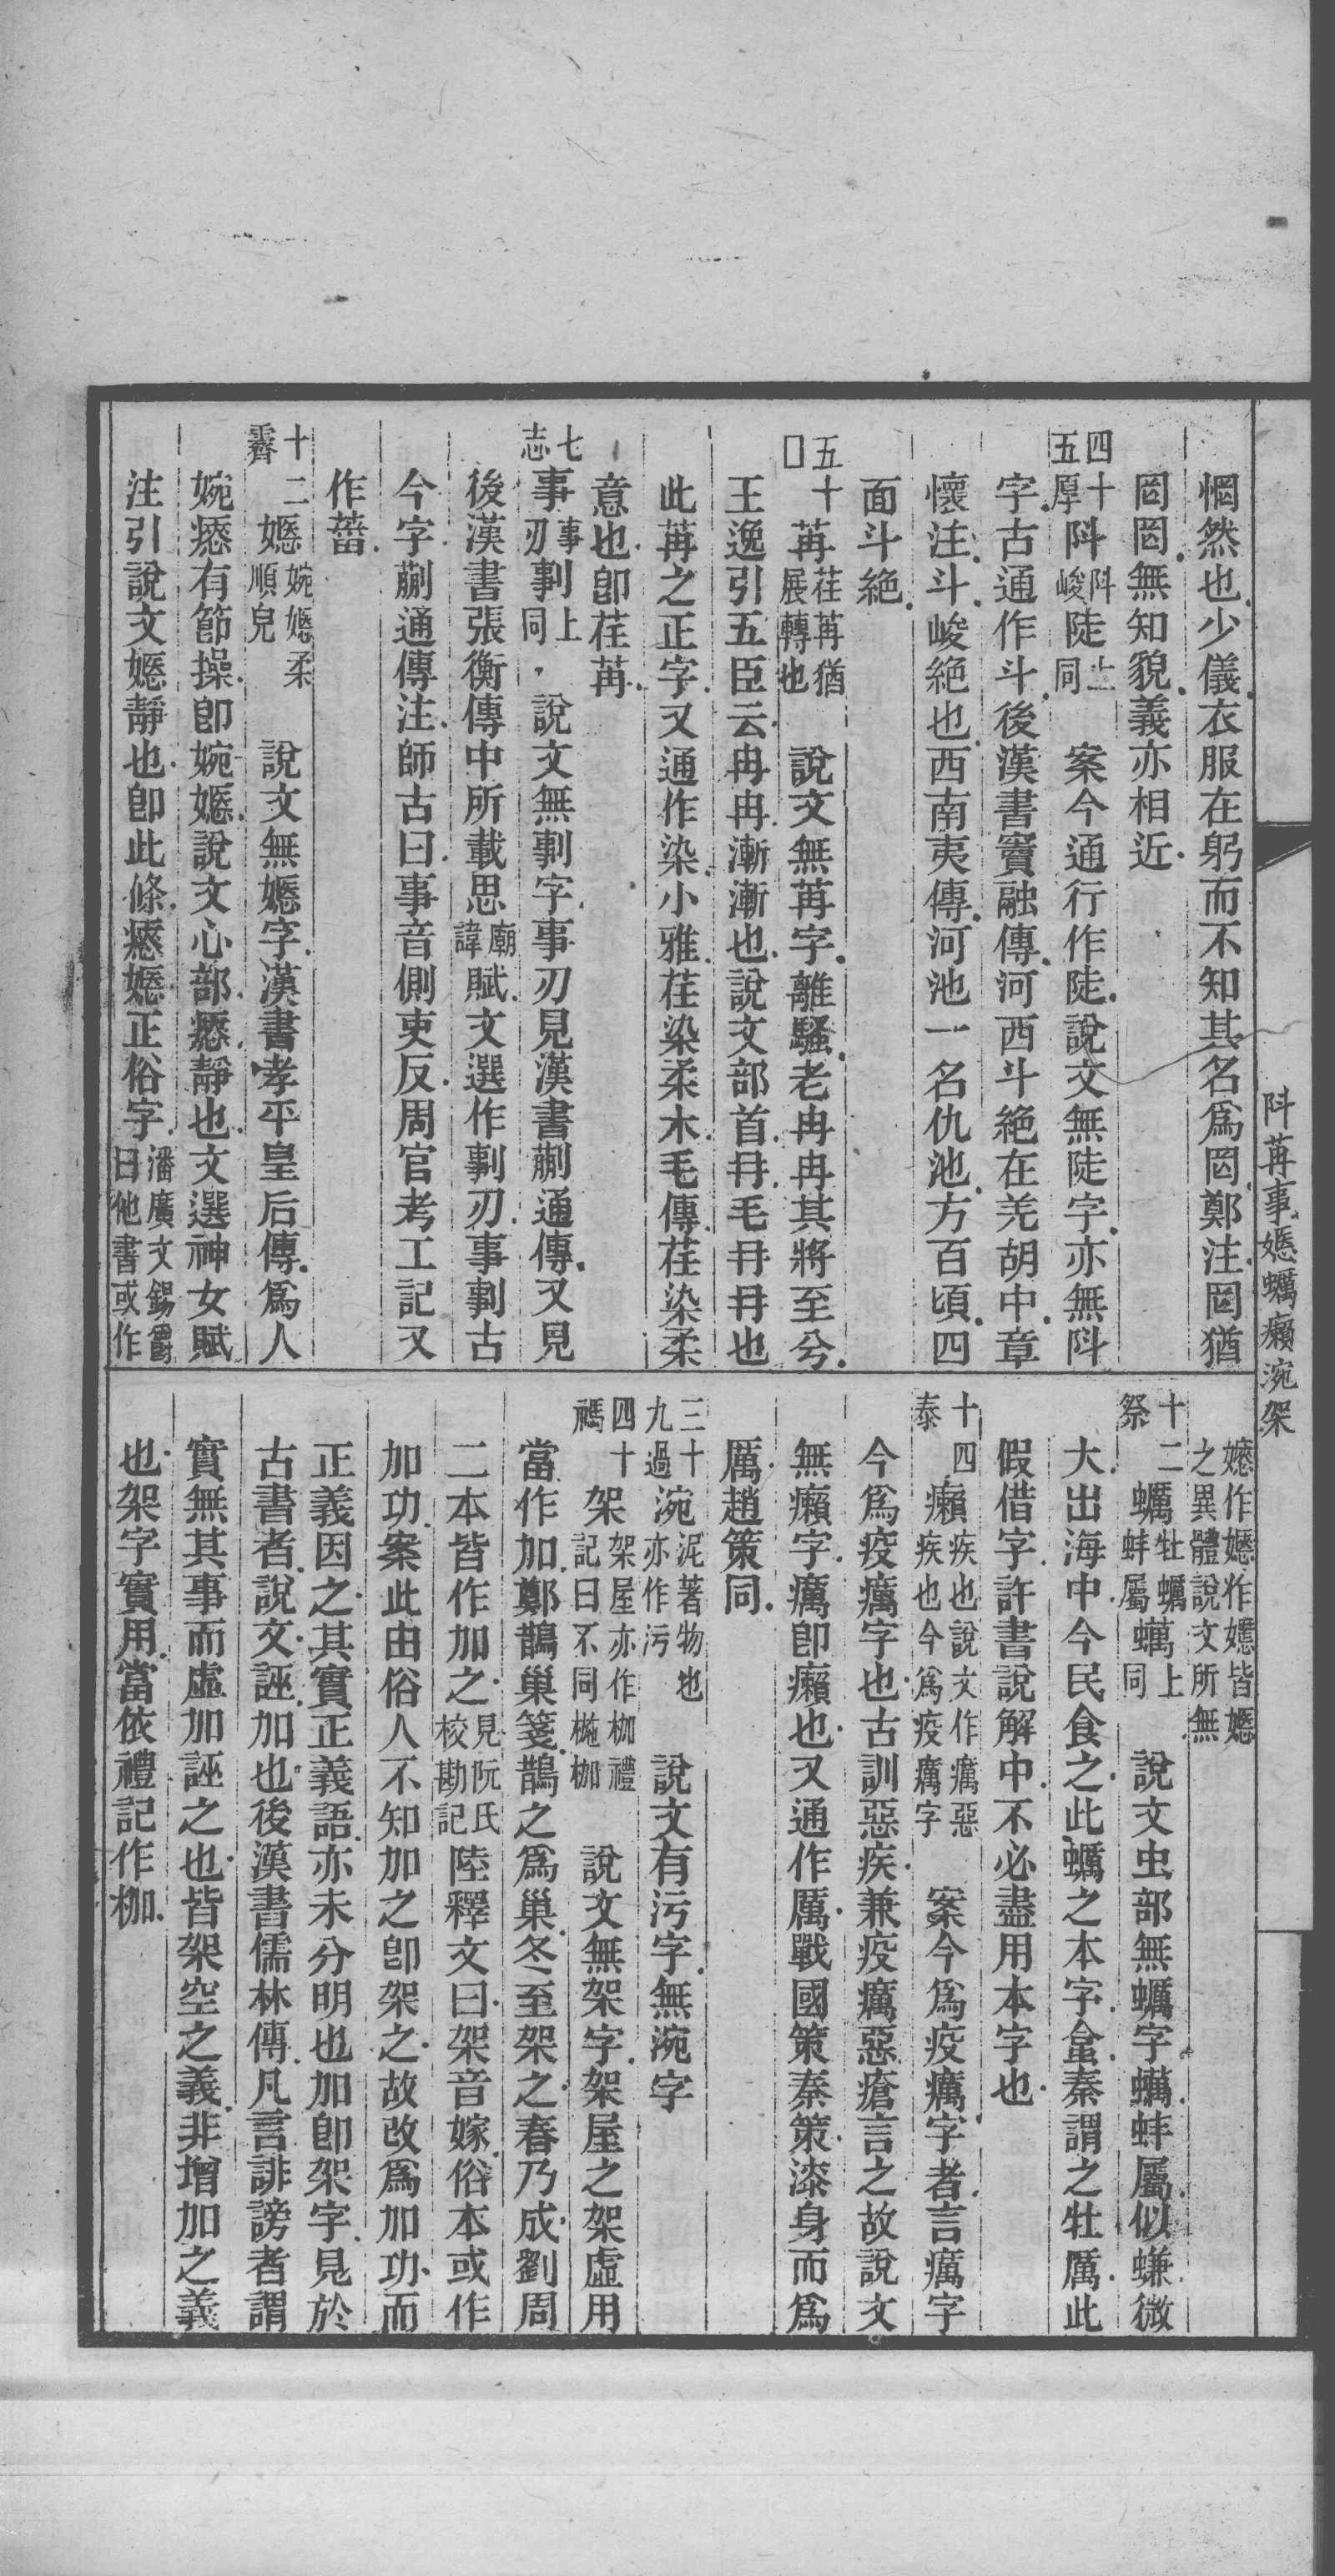 惘然也少儀衣服在躬而不知其名爲罔鄭注罔猶
罔罔無知貌義亦相近
四十五厚 阧阧峻陡上同 案今通行作陡說文無陡字亦無阧
字古通作斗後漢書竇融傳河西斗絕在羌胡中章
懷注斗峻絕也西南夷傳河池一名仇池方百頃四
面斗絕
五十 苒荏苒猶展轉也 說文無苒字離騷老冉冉其將至兮
王逸引五臣云冉冉漸漸也說文部首冄毛冄冄也
此苒之正字又通作染小雅荏染柔木毛傳荏染柔
意也卽荏苒
七志 事事刃剚上同 說文無剚字事刃見漢書蒯通傳又見
後漢書張衡傳中所載思廟諱賦文選作剚刃事剚古
今字蒯通傳注師古曰事音側吏反周官考工記又
作菑
十二霽 嫕婉嫕柔順皃 說文無嫕字漢書孝平皇后傳爲人
婉瘱有節操卽婉嫕說文心部瘱靜也文選神女賦
注引說文嫕靜也卽此條瘱嫕正俗字潘廣文錫爵曰他書或作
嫕作嬺作㜒皆嫕之異體說文所無
十二祭 蠣牡蠣蚌屬蠇上同 說文虫部無蠣字蠇蚌屬似螊微
大出海中今民食之此蠣之本字蜦秦謂之牡厲此
假借字許書說解中不必盡用本字也
十四泰 癩疾也說文作癘惡疾也今爲疫癘字 案今爲疫癘字者言癘字
今爲疫癘字也古訓惡疾兼疫癘惡瘡言之故說文
無癩字癘卽癩也又通作厲戰國策秦策漆身而爲
厲趙策同
三十九過 涴泥著物也亦作污 說文有污字無涴字
四十禡 架架屋亦作枷禮記曰不同椸枷 說文無架字架屋之架虛用
當作加鄭鵲巢箋鵲之爲巢冬至架之春乃成劉周
二本皆作加之見阮氏校勘記陸釋文曰架音嫁俗本或作
加功案此由俗人不知加之卽架之故改爲加功而
正義因之其實正義語亦未分明也加卽架字見於
古書者說文誣加也後漢書儒林傳凡言誹謗者謂
實無其事而虛加誣之也皆架空之義非增加之義
也架字實用當依禮記作枷
阧苒事嫕蠣癩涴架